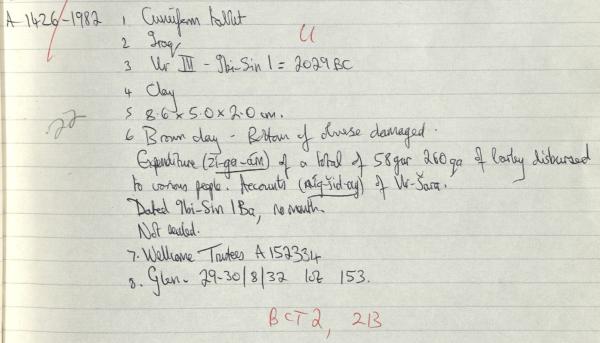 A 1426-1982 1 Cuneiform tablet
U
2 Iraq
3 Ur III - Ibi-Sin 1 = 2029 BC
4 Clay
5 8.6 x 5.0 x 2.0 cm.
22
6 Brown clay - Bottom of obverse damaged.
Expenditure (zi-ga-àm) of a total of 58 gur 260 qa of barley disbursed
to various people. Accounts (níg-šid-ag) of Ur-Šara.
Dated Ibi-Sin 1 Ba, no month.
Not sealed.
7. Wellcome Trustees A 152334
8. Glen. 29-30/8/32 lot 153.
BCT 2, 213